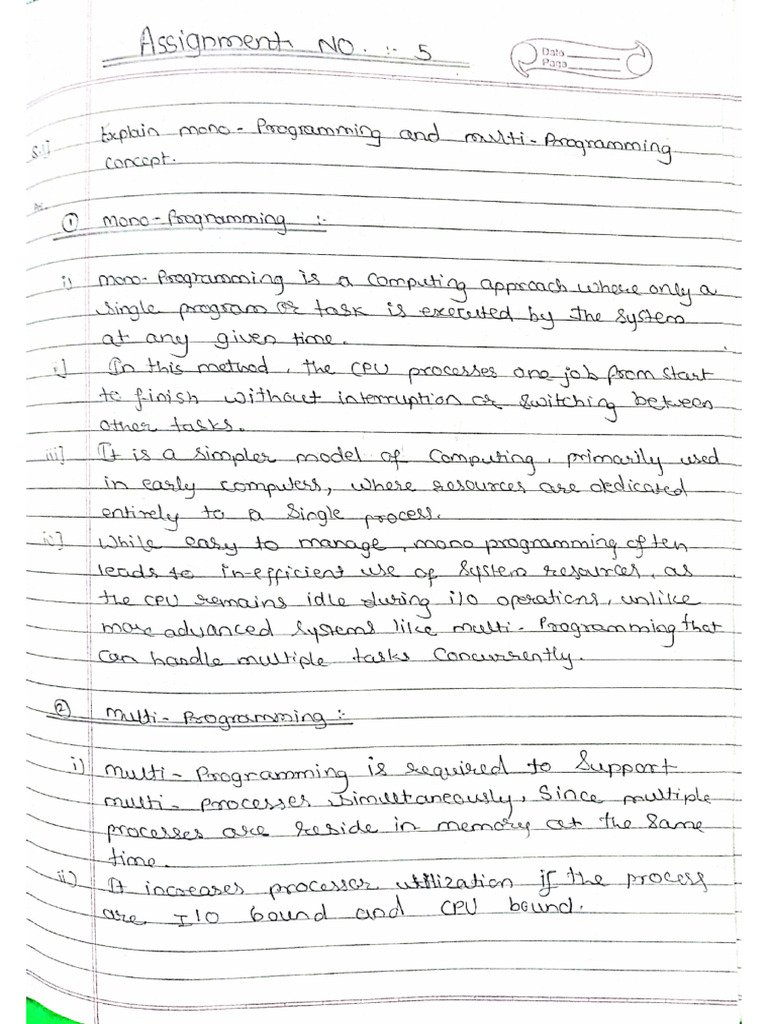 Assignment No. :- 5
Date
Page
Explain mono-Programming and multi-Programming
concept.
Ans.
① mono-Programming :-
i) mono-Programming is a computing approach where only a
single program or task is executed by the system
at any given time.
ii] In this method, the CPU processes one job from start
to finish without interruption or switching between
other tasks.
iii] It is a simpler model of computing, primarily used
in early computers, where resources are dedicated
entirely to a single process.
iv] While easy to manage, mono programming often
leads to in-efficient use of system resources, as
the CPU remains idle during i/o operations, unlike
more advanced systems like multi-Programming that
can handle multiple tasks concurrently.
② Multi-Programming :-
i) multi-Programming is required to support
multi-processes simultaneously, Since multiple
processes are reside in memory at the same
time.
ii) It increases processor utilization if the process
are I/O bound and CPU bound.